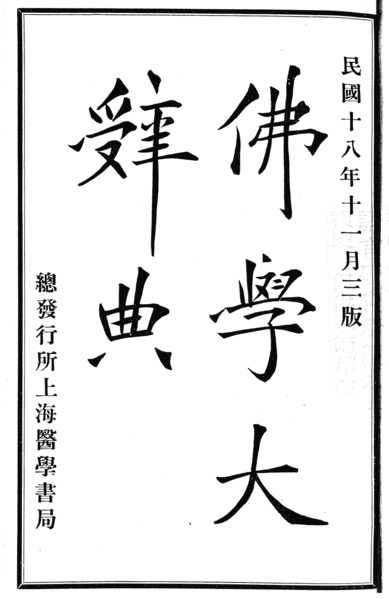 民國十八年十一月三版
佛學大
辭典
總發行所上海醫學書局